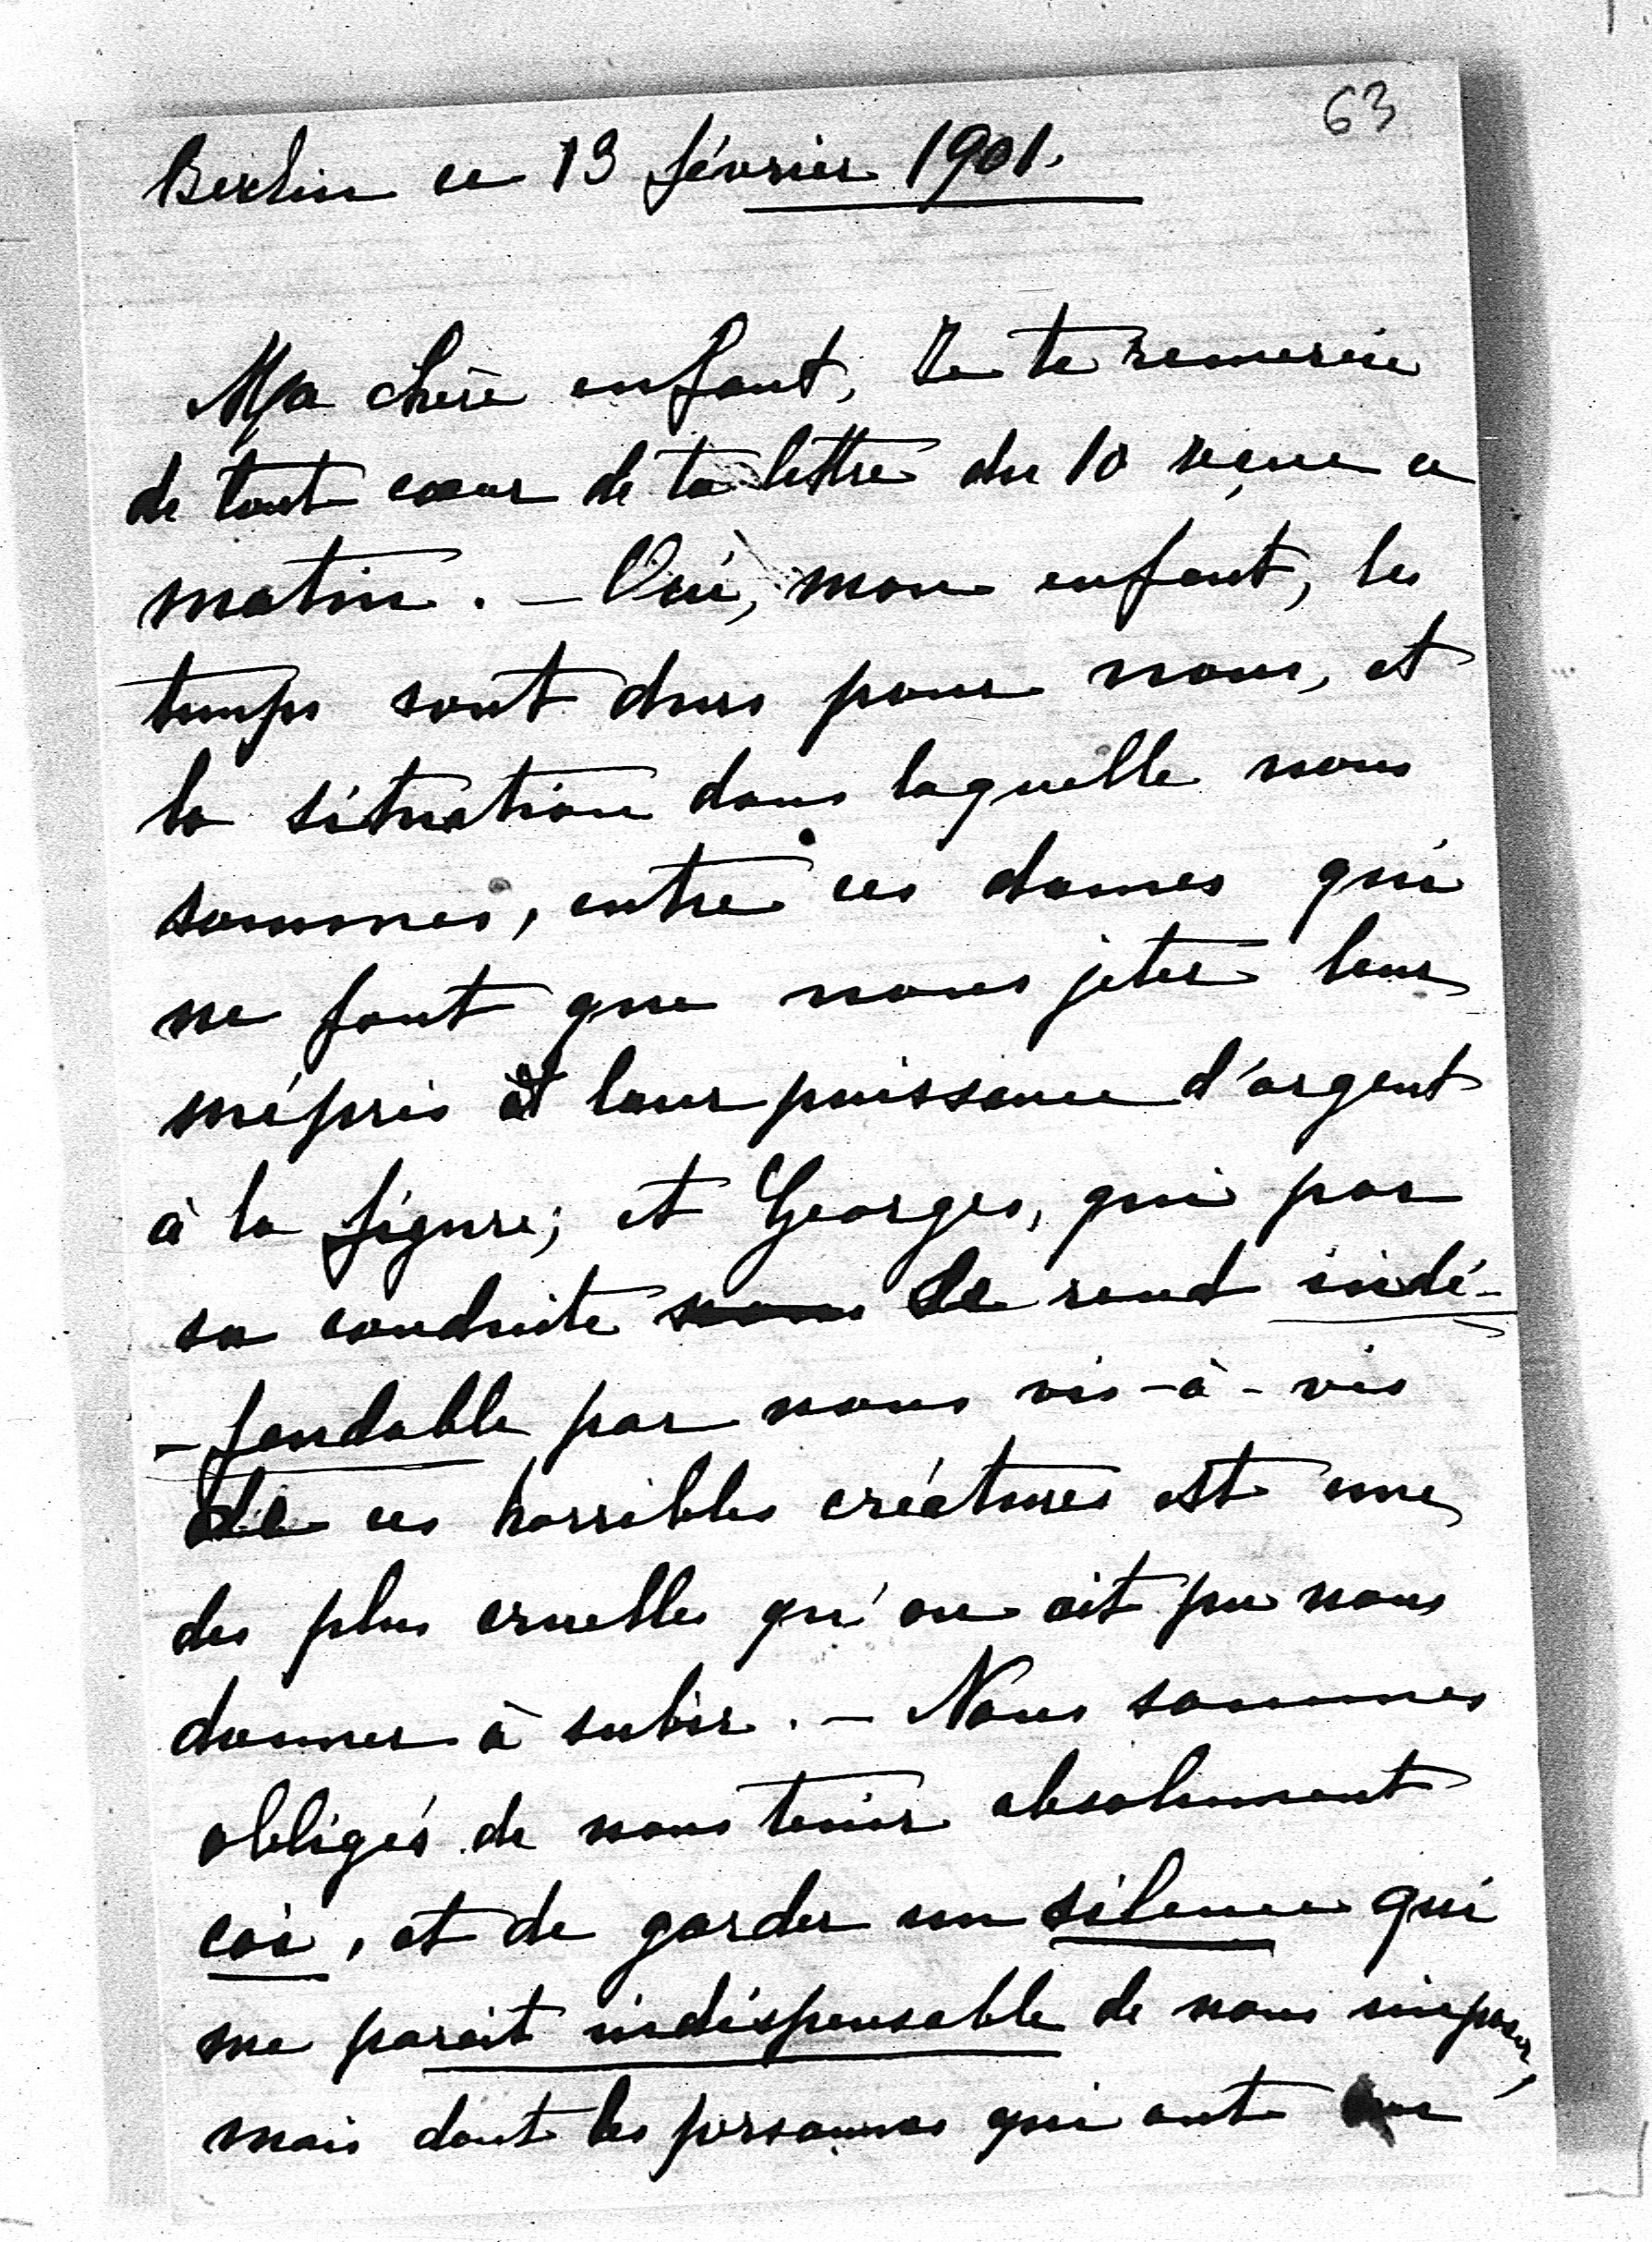 63
Berlin ce 13 février 1901.
Ma chère enfant, Je te remercie
de tout cœur de ta lettre du 10 reçue ce
matin. — Oui, mon enfant, les
temps sont durs pour nous, et
la situation dans laquelle nous
sommes, entre ces dames qui
ne font que nous jeter leur
mépris et leur puissance d'argent
à la figure; et Georges, qui par
sa conduite nous se rend indé-
-fendable par nous vis-à-vis
de ces horribles créatures est une
des plus cruelles qu'on ait pu nous
donner à subir. — Nous sommes
obligés de nous tenir absolument
coi, et de garder un silence qui
me parait indispensable de nous imposer,
mais dont les personnes qui ont